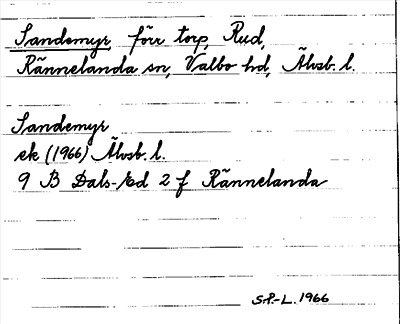 Sandemyr förr torp, Rud,
Rännelanda sn, Valbo hd, Älvsb. l.
Sandemyr
ek (1966) Älvsb. l.
9 B Dals-Ed 2 f Rännelanda
S.P.-L. 1966